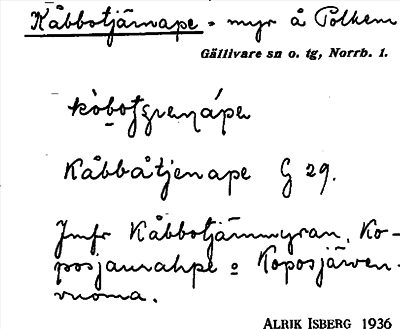 Kåbbotjärnape - myr å Polkem
Gällivare sn o. tg, Norrb. l.
Kåbbåtjenape G 29.
Jmfr Kåbbotjärnmyran, Ko-
posjaurahpe o Koposjärven-
vuoma.
ALRIK ISBERG 1936